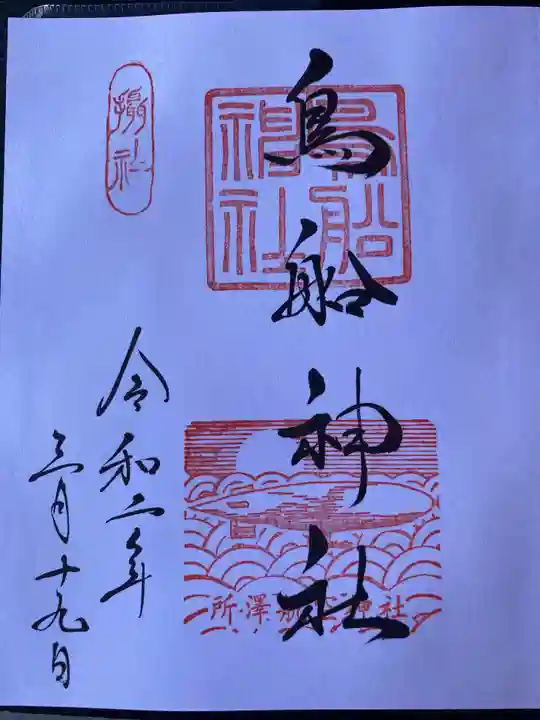 鳥船神社
鳥船
神社
所澤航空神社
攝社
令和二年
三月十九日